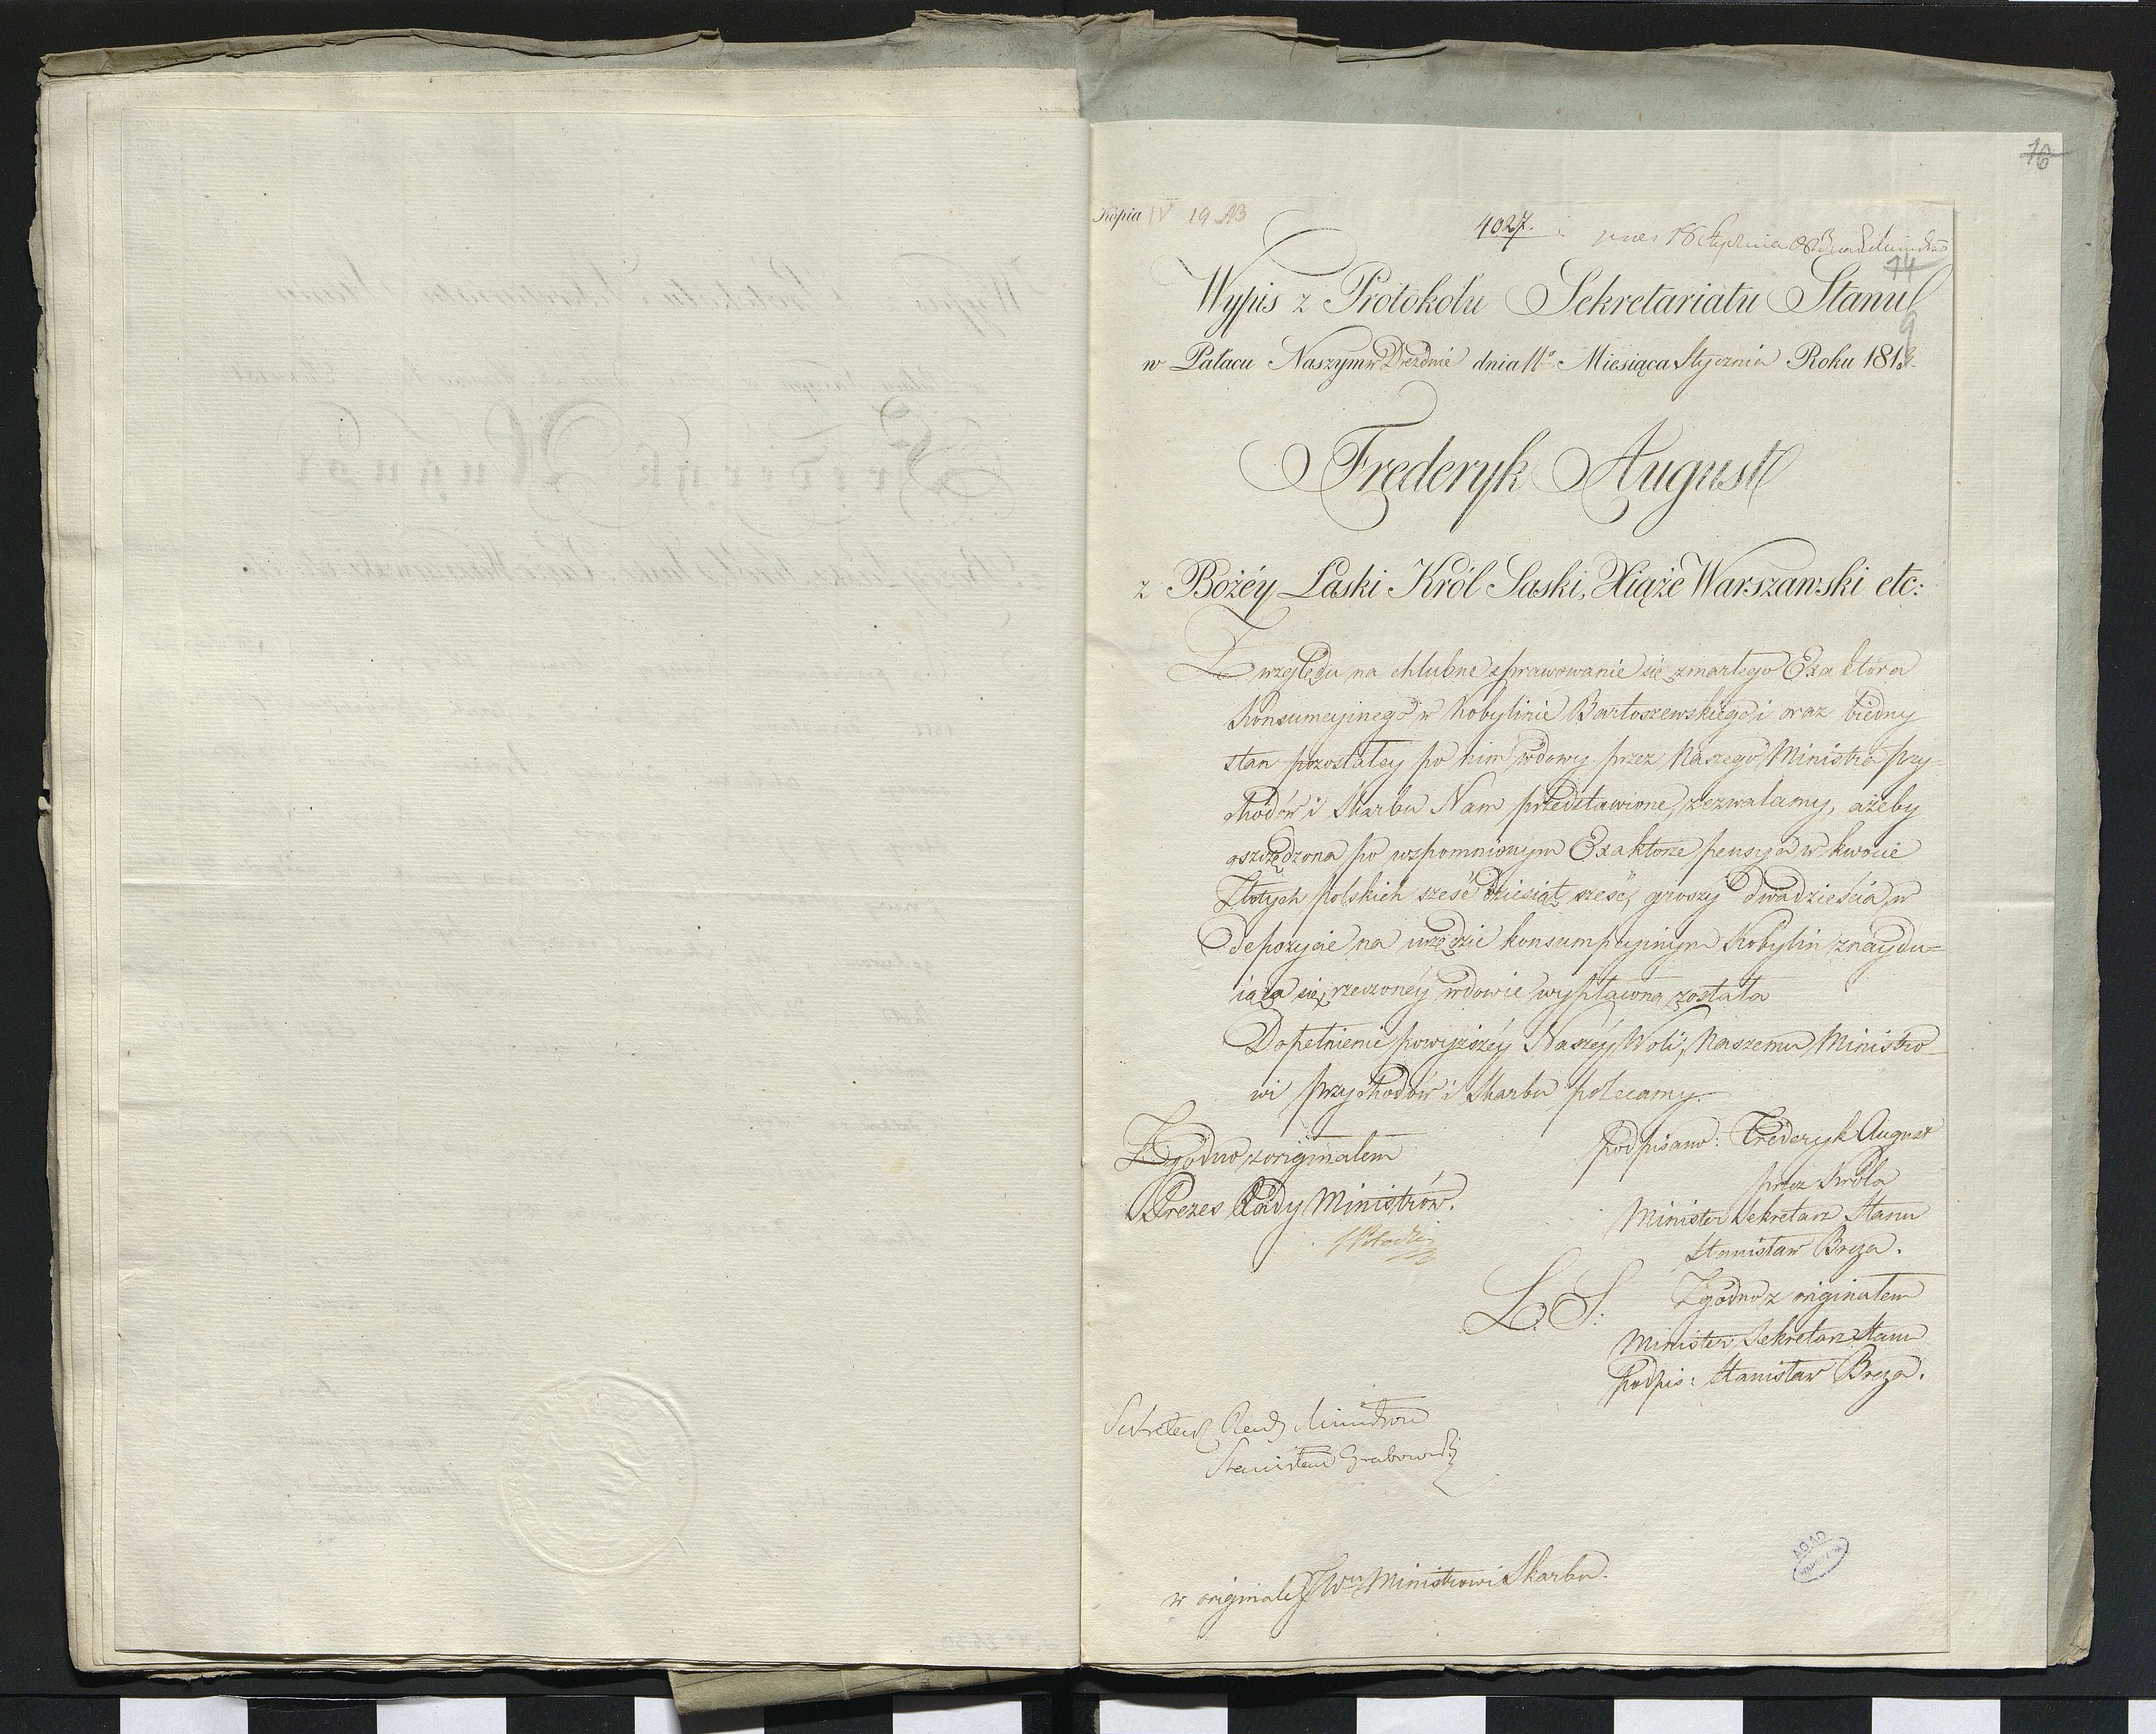 16
Kopia IV 19 AB
4027.
14
Wypis z Protokołu Sekretariatu Stanu
9
w Pałacu Naszym w Dreźdnie dnia 11º Miesiąca Stycznia Roku 1813.
Frederyk August
z Bożéy Łaski Król Saski, Xiąże Warszawski etc:
Z względu na chlubne sprawowanie się zmarłego Exaktora
Konsumcyinego w Kobylinie Bartoszewskiego i oraz biedny
stan pozostałey po nim wdowy przez Naszego Ministra Przy-
chodów i Skarbu Nam przedstawione, zezwalamy, ażeby
oszczędzona po wspomnionym Exaktorze pensya w kwocie
Złotych polskich sześćdziesiąt sześć, groszy dwadzieścia, w
Depozycie na urzędzie konsumpcyinym Kobylin znaydu-
iąca się, rzeczonéy wdowie wypłacona została
Dopełnienie powyższéy Naszéy Woli, Naszemu Ministro-
wi Przychodów i Skarbu polecamy.
Zgodno z originałem
Prezes Rady Ministrów.
podpisano: Frederyk August
przez Króla
Minister Sekretarz Stanu
Stanisław Breza.
L. S.
Zgodno z originałem
Minister Sekretarz Stanu
podpis: Stanisław Breza.
Sekretarz Rady Ministrów
Stanisław Grabowski
w originale JWmu Ministrowi Skarbu.
AGAD
WARSZAWA